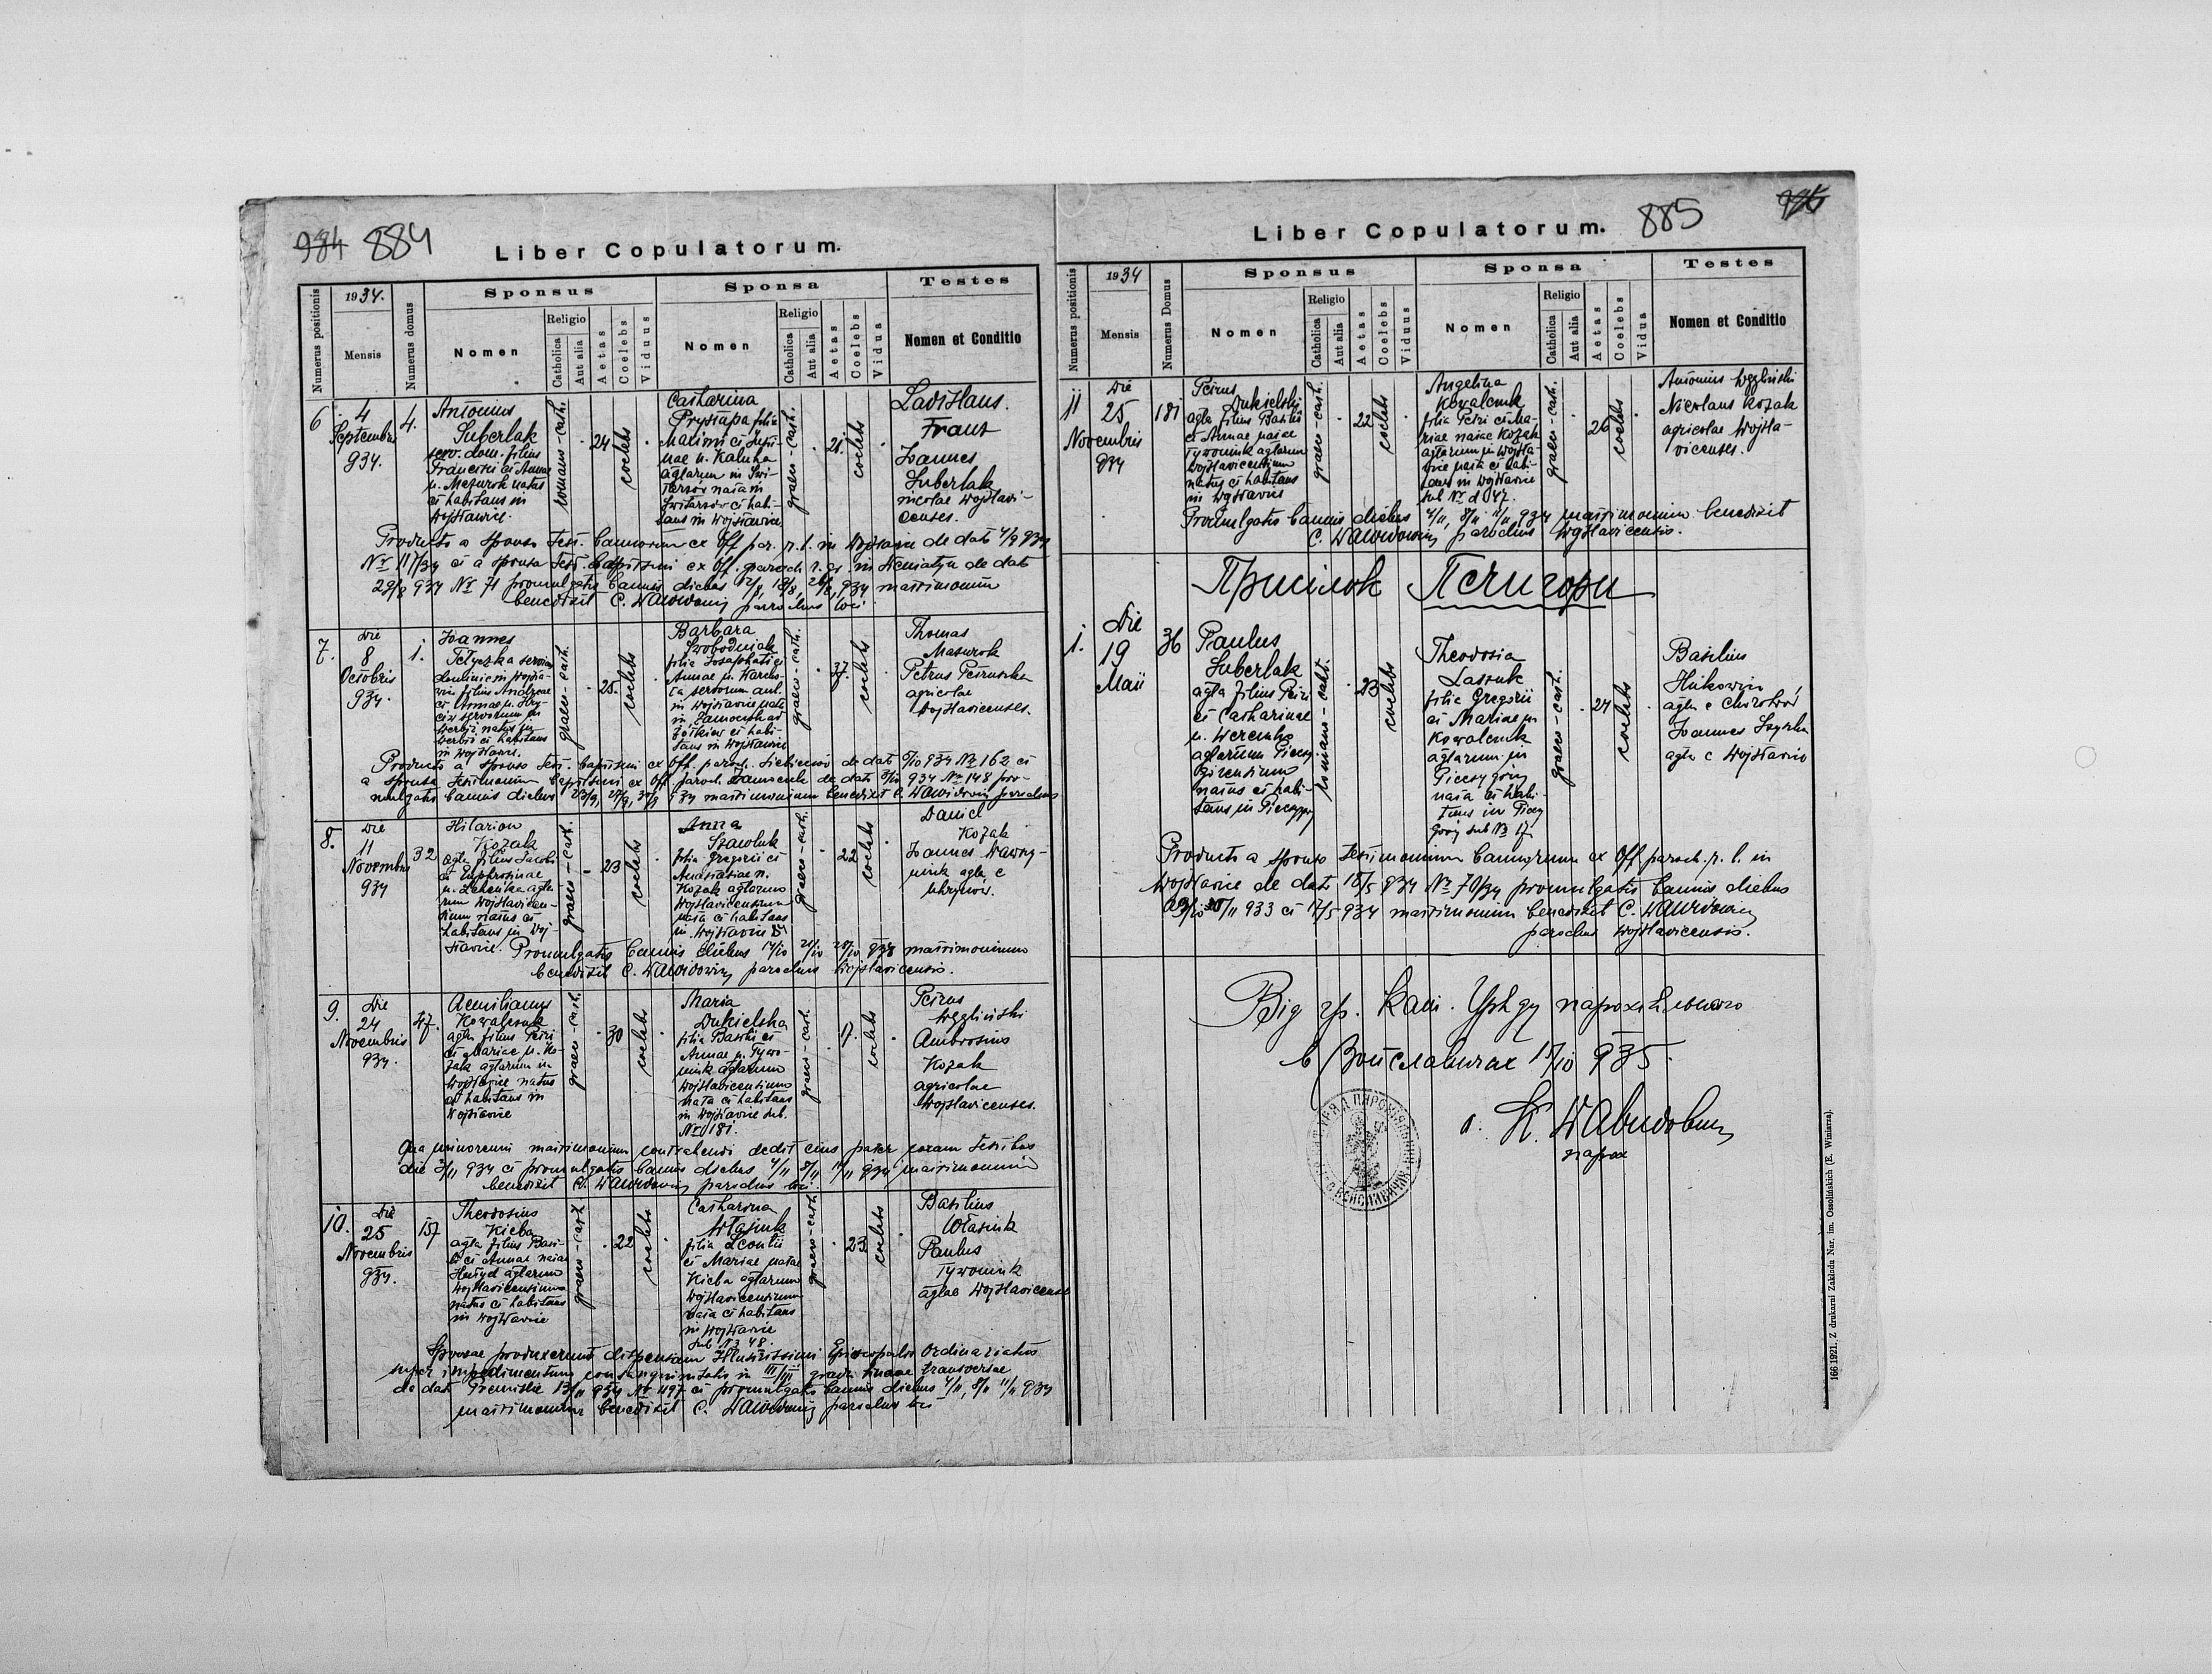 984 884
Liber Copulatorum.
Numerus positionis
1934.
Mensis
Numerus domus
Sponsus
Nomen
Religio
Catholica
Aut alia
Aetas
Coelebs
Viduus
Sponsa
Nomen
Religio
Catholica
Aut alia
Aetas
Coelebs
Vidua
Testes
Nomen et Conditio
6
4
Septembris
934.
4.
Antonius
Suberlak
serv. dom. filius
Francisci et Annae
n. Mazurok natus
et habitans in
Wojsławice.
romano-cath.
24
coelebs
Catharina
Prystapa filia
Maximi et
n. Kaluha
aglarum in
nata in
et habi-
tans in Wojsławice
graeco-cath.
21.
coelebs
Ladislaus
Franz
Joannes
Suberlak
Wojslavi-
censes.
Producto a sponso test. bannorum ex Off. par. r. l. in Wojsławice de dato 4/9 934
No 117/34 et a sponsa test. baptismi ex off. paroch. r. gr. in de dato
29/8 934 No 71 promulgatis bannis diebus 12/8, 19/8, 26/8 934 matrimonium
benedixit C. Wawidowicz parochus loci
7.
Die
8
Octobris
934.
1.
Joannes
Tetyczka
filius Andreae
et Annae n.
natus in
et habitans
in Wojsławice.
graeco-cath.
25.
coelebs
Barbara
Swobodniak
filia Josaphati et
Annae n.
servorum aul.
in Wojsławice nata
in Zamoczek ad
Żółkiew et habi-
tans in Wojsławice
graeco-cath.
37.
coelebs
Thomas
Mazurok
Petrus Petruszka
agricolae
Wojslavicenses.
Producto a sponso test. baptismi ex Off. paroch. de dato 934 No 162 et
a sponsa testimonium baptismi ex Off. paroch. Zamoczek de dato 934 No 148 pro-
mulgatis bannis diebus 23/9, 27/9, 30/9 934 matrimonium benedixit C. Wawidowicz parochus
8.
Die
11
Novembris
934
32
Hilarion
Kozak
agla filius Jacobi
et Euphrosinae
n. agla-
rum Wojslavicen-
sium natus et
habitans in Woj-
sławice.
graeco-cath.
23
coelebs
Anna
filia Gregorii et
Anastasiae n.
Kozak aglarum
Wojslavicensium
nata et habitans
in Wojsławice
graeco-cath.
22
coelebs
Daniel
Kozak
Joannes Wawry-
niuk agla e
Uhrynów.
Promulgatis bannis diebus 14/10 21/10 28/10 934 matrimonium
benedixit C. Wawidowicz parochus Wojslavicensis.
9.
Die
24
Novembris
934.
47.
Aemilianus
Kowalczuk
agla filius Petri
et Mariae n. Ko-
zak aglarum in
Wojsławice natus
et habitans in
Wojsławice
graeco-cath.
30
coelebs
Maria
Dukielska
filia Basilii et
Annae n. Tywo-
niuk aglarum
Wojslavicensium
nata et habitans
in Wojsławice sub
No 181.
graeco-cath.
17.
coelebs
Petrus
Węgliński
Ambrosius
Kozak
agricolae
Wojslavicenses.
Qua minorenni matrimonium contrahendi dedit eius pater coram testibus
die 3/11 934 et promulgatis bannis diebus 4/11 8/11 11/11 934 matrimonium
benedixit C. Wawidowicz parochus loci.
10.
Die
25
Novembris
934.
157
Theodosius
Kieba
agla filius Basi-
lii et Annae natae
aglarum
Wojslavicensium
natus et habitans
in Wojsławice
graeco-cath
22
coelebs
Catharina
Własiuk
filia Leontii
et Mariae natae
Kieba aglarum
Wojslavicensium
nata et habitans
in Wojsławice
sub No 48.
graeco-cath
23
coelebs
Basilius
Własiuk
Paulus
Tywoniuk
aglae Wojslavicenses
Sponsae produxerunt dispensam Illustrissimi Episcopalis Ordinariatus
super impedimentum consanguinitatis in III/III gradu lineae transversae
de dato Premisliae 13/11 934 No 1197 et promulgatis bannis diebus 4/11, 8/11 11/11 934
matrimonium benedixit C. Wawidowicz parochus loci
885
Liber Copulatorum.
Numerus positionis
1934
Mensis
Numerus Domus
Sponsus
Nomen
Religio
Catholica
Aut alia
Aetas
Coelebs
Viduus
Sponsa
Nomen
Religio
Catholica
Aut alia
Aetas
Coelebs
Vidua
Testes
Nomen et Conditio
11
Die
25
Novembris
934
181
Petrus
Dukielski
agla filius Basilii
et Annae natae
Tywoniuk aglarum
Wojslavicensium
natus et habitans
in Wojsławice
graeco-cath.
22
coelebs
Angelina
Kowalczuk
filia Petri et Ma-
riae natae Kozak
aglarum in Wojsła-
wice nata et habi-
tans in Wojsławice
sub No d 47.
graeco-cath.
26
coelebs
Antonius Węgliński
Nicolaus Kozak
agricolae Wojsla-
vicenses.
Promulgatis bannis diebus 4/11, 8/11 11/11 934 matrimonium benedixit
C. Wawidowicz parochus Wojslavicensis.
Присілок Печигори
1.
Die
19
Maii
36
Paulus
Suberlak
agla filius Petri
et Catharinae
n. Weremko
aglarum Pieczy-
girensium
natus et habi-
tans in Pieczygóry
romano-cath.
23
coelebs
Theodosia
Laszuk
filia Gregorii
et Mariae n.
Kowalczuk
aglarum in
Pieczygóry
nata et habi-
tans in Pieczy-
góry sub No 17.
graeco-cath.
24
coelebs
Basilius
agla e
Joannes
agla e Wojsławice
Producto a sponso testimonium bannorum ex Off. paroch. r. l. in
Wojsławice de dato 18/5 934 No 70/34 promulgatis bannis diebus
933 et 17/5 934 matrimonium benedixit C. Wawidowicz
parochus Wojslavicensis.
Від гр. кат. Уряду парохіяльного
в Войславичах 15/10 935.
о. К. Вавидович
парох
166 1921. Z drukarni Zakładu Nar. im. Ossolińskich (E. Winiarza).